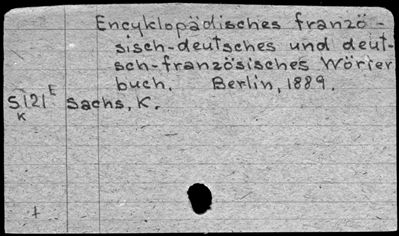 Encyklopädisches franzö-
sisch-deutsches und deut-
sch-französisches Wörter
buch. Berlin, 1889.
S121E Sachs, K.
K